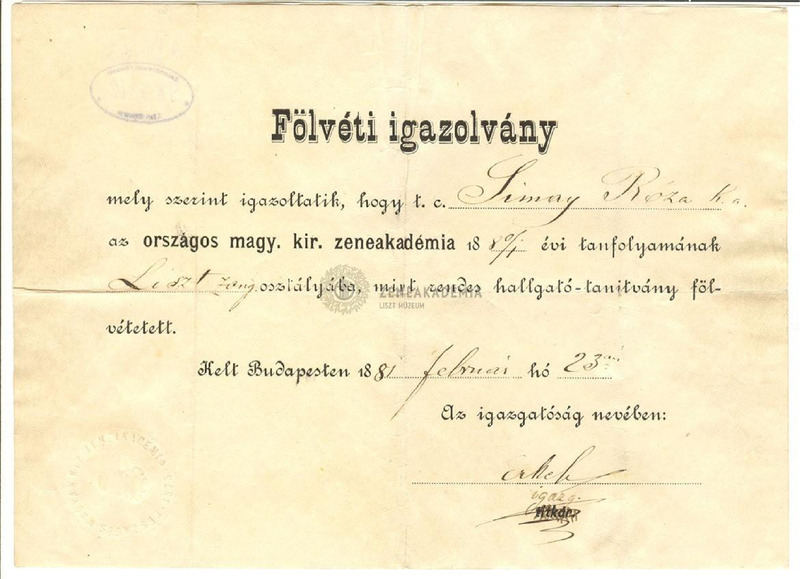 Fölvéti igazolvány
mely szerint igazoltatik, hogy t. c. Simay Róza k. a.
az országos magy. kir. zeneakadémia 1880/1 évi tanfolyamának
Liszt zong. osztályába, mint rendes hallgató-tanitvány föl-
vétetett.
ZENEAKADÉMIA
LISZT MÚZEUM
Kelt Budapesten 1881 február hó 23án
Az igazgatóság nevében:
Erkel
igazg.
titkár.